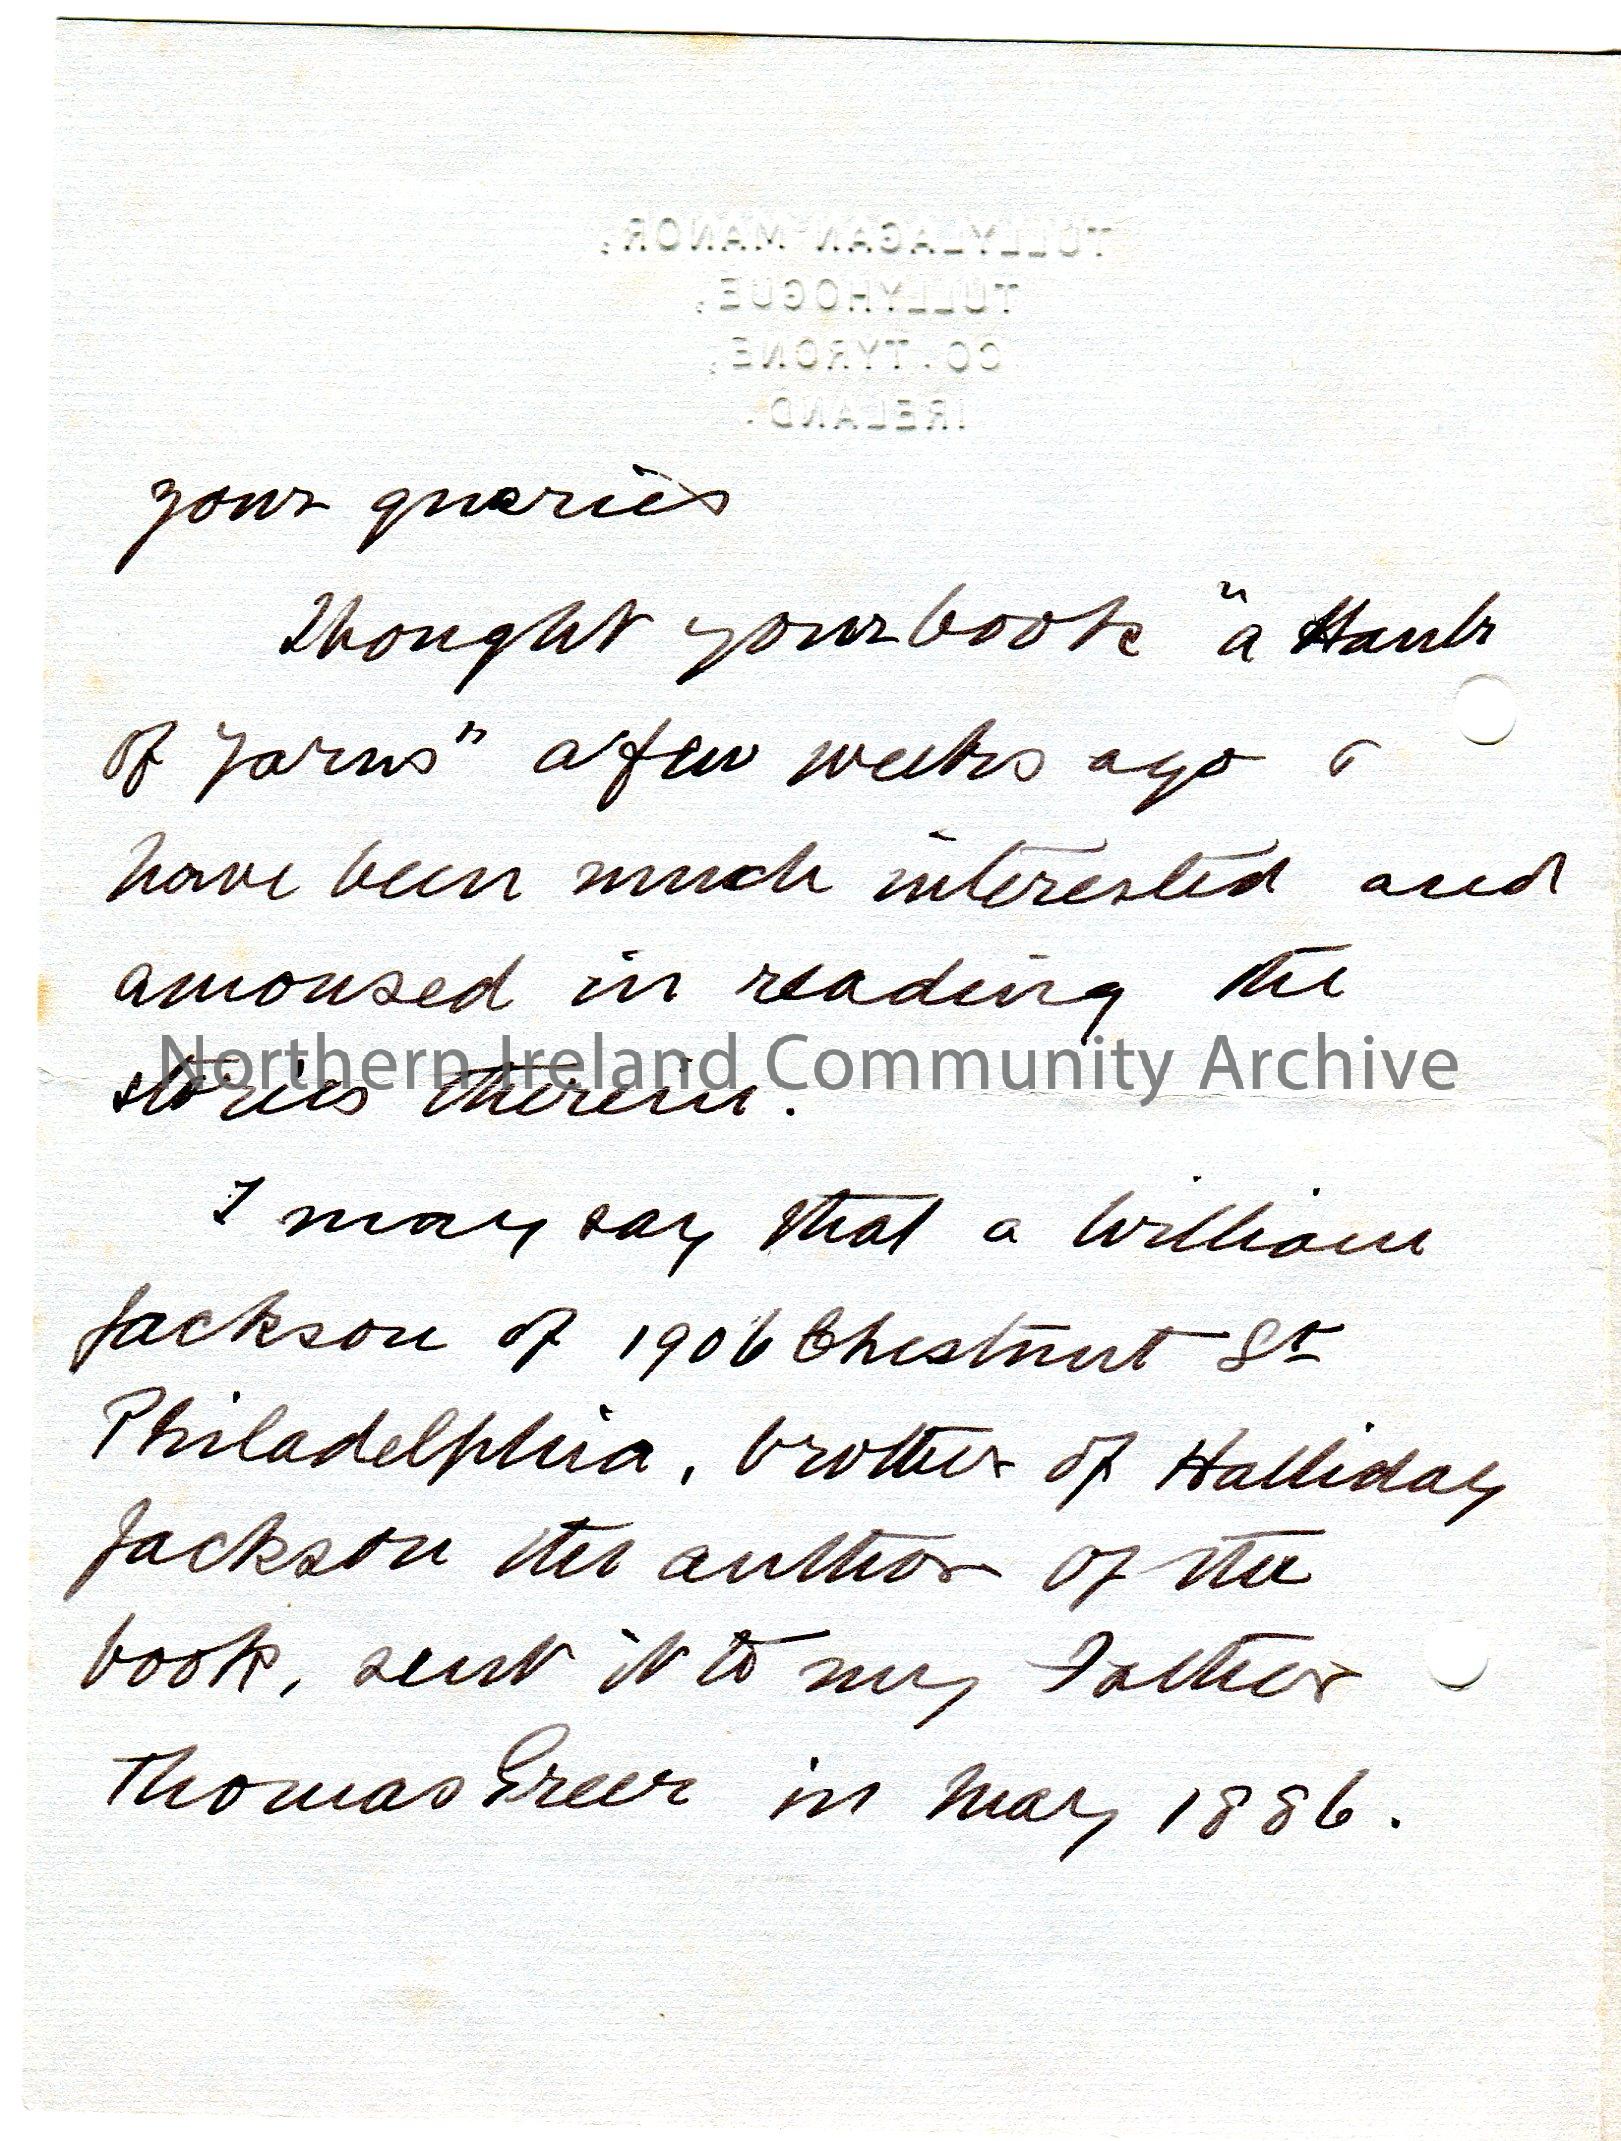 TULLYLAGAN MANOR,
TULLYHOGUE,
CO. TYRONE,
IRELAND.
your queries
I bought your book "a Hank
of Yarns" a few weeks ago &
have been much interested and
amoused in reading the
Northern Ireland Community Archive
stories therein.
I may say that a William
Jackson of 1906 Chestnut St
Philadelphia, brother of Halliday
Jackson the author of the
book, sent it to my Father
Thomas Greer in May 1886.